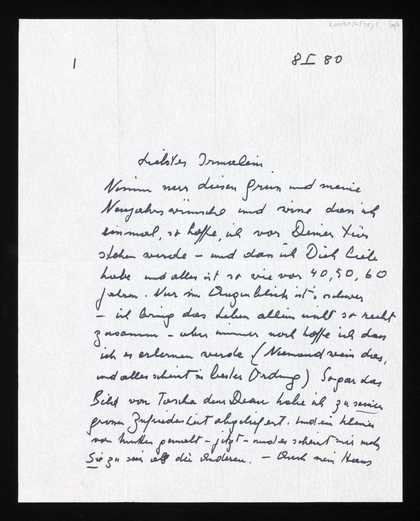 1
8 I 80
Liebstes Irmelein
Nimm nur diesen Gruss und meine
Neujahrswünsche und wisse dass ich
einmal, so hoffe, ich vor Deiner Tür
stehen werde – und dass ich Dich liebe
habe und alles ist so wie vor 40, 50, 60
Jahren. Nur im Augenblick ist's schwer
– ich bring das Leben allein nicht so recht
zusamm – aber immer noch hoffe ich dass
ich es erlernen werde (Niemand weiss das,
und alles scheint in bester Ordnung) Sogar das
Bild von Tascha dem Dean habe ich zu seiner
grossen Zufriedenheit abgeliefert. Und ein kleines
von hinten gemalt – jetzt – und es scheint mir mehr
Sie zu sein als die Anderen. – Auch mein Haus